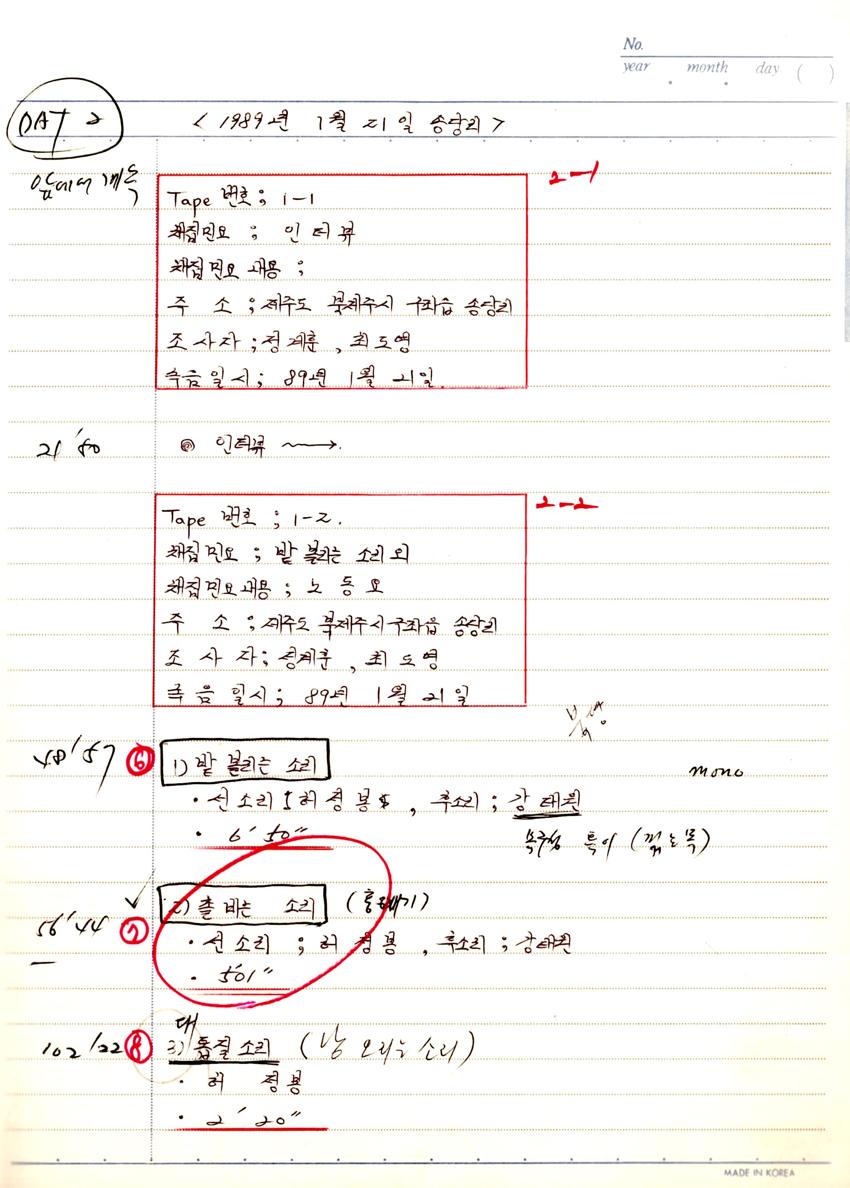 No.
year month day ( )
DAT 2
< 1989년 1월 21일 송당리 >
앞에서 계속
2-1
Tape 번호 ; 1-1
채집민요 ; 인터뷰
채집민요 내용 ;
주 소 ; 제주도 북제주시 구좌읍 송당리
조 사 자 ; 정계훈 , 최도영
녹음일시 ; 89년 1월 21일.
21'50 ◎ 인터뷰
2-2
Tape 번호 ; 1-2.
채집민요 ; 밭 불리는 소리 외
채집민요내용 ; 노동요
주 소 ; 제주도 북제주시 구좌읍 송당리
조 사 자 ; 정계훈 , 최도영
녹음 일시 ; 89년 1월 21일
48'57 ⑥ 1) 밭 불리는 소리
mono
• 선소리 허정봉 , 후소리 ; 강태원
• 6'50"
특이 (꺾는목)
56'44 ⑦ 2) 촐 비는 소리 (홍애기)
• 선소리 ; 허정봉 , 후소리 ; 강태원
• 5'01"
대
102'22 ⑧ 3) 톱질소리 (낭 소리)
• 허정봉
• 2'20"
MADE IN KOREA